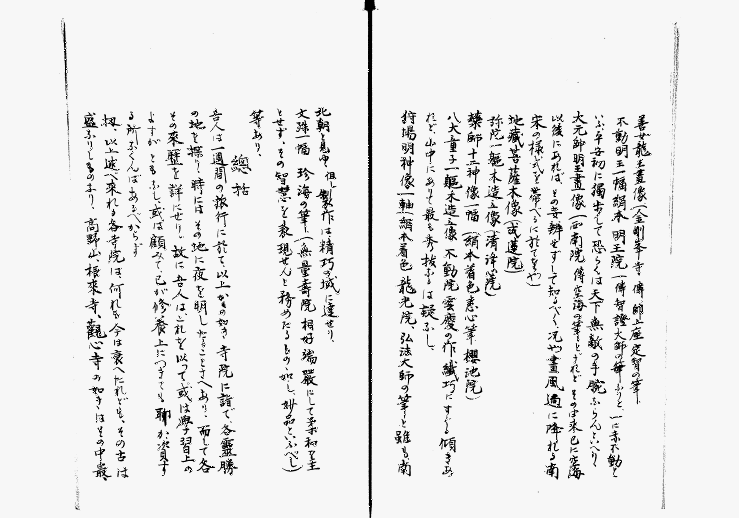 善女龍王畫像(金剛峯寺傳師上座定智の筆
不動明王一幅 絹本 明王院(傳智證大師の筆なりと、一に赤不動と
いふ 勁に獨歩して恐らくは天下無敵の手腕ならんといへり
大元師明王畫像(西南院 傳空海の筆とすれど そのは未已に空海
以後にあれば、その妄辨せずして知るべく、况や畫風遙に降れる南
宋の様式を帶べるに於てをや)
地藏菩薩木像(成蓮院)
弥陀一軀木造立像(清淨心院)
藥師十二神像一幅(絹本着色惠心筆 櫻池院)
八大童子一軀木造立像 不動院 雲慶の作 纎巧にすぐる傾きあ
れど、山中にありて最も秀拔なるは疑なし、
狩場明神像一軸(絹本着色 龍光院、弘法大師の筆と雖も南
北朝を見ゆ 但し製作は精巧の域に達せり、
文殊一幅 珍海の筆(無量壽院 相好端嚴にして柔和を主
とせず、その智慧を表現せんと務めたるもの如し、妙品といふべし)
等あり、
總括
吾人は一週間の旅行に於て以上かくの如き寺院に詣で各靈勝
の地を探り、時にはその地に夜を明し たることさへあり、而して各
その來歴を詳にせり、故に吾人はこれを以つて或は學習上の
よすがともなし或は顧みて己が修養上につきても聊か資す
る所なくんばあるべからず
扨、以上述べ來れる各寺院は、何れも今は衰へたれども、その古は
盛なりしものなり、高野山、根來寺、觀心寺の如きはその中最、